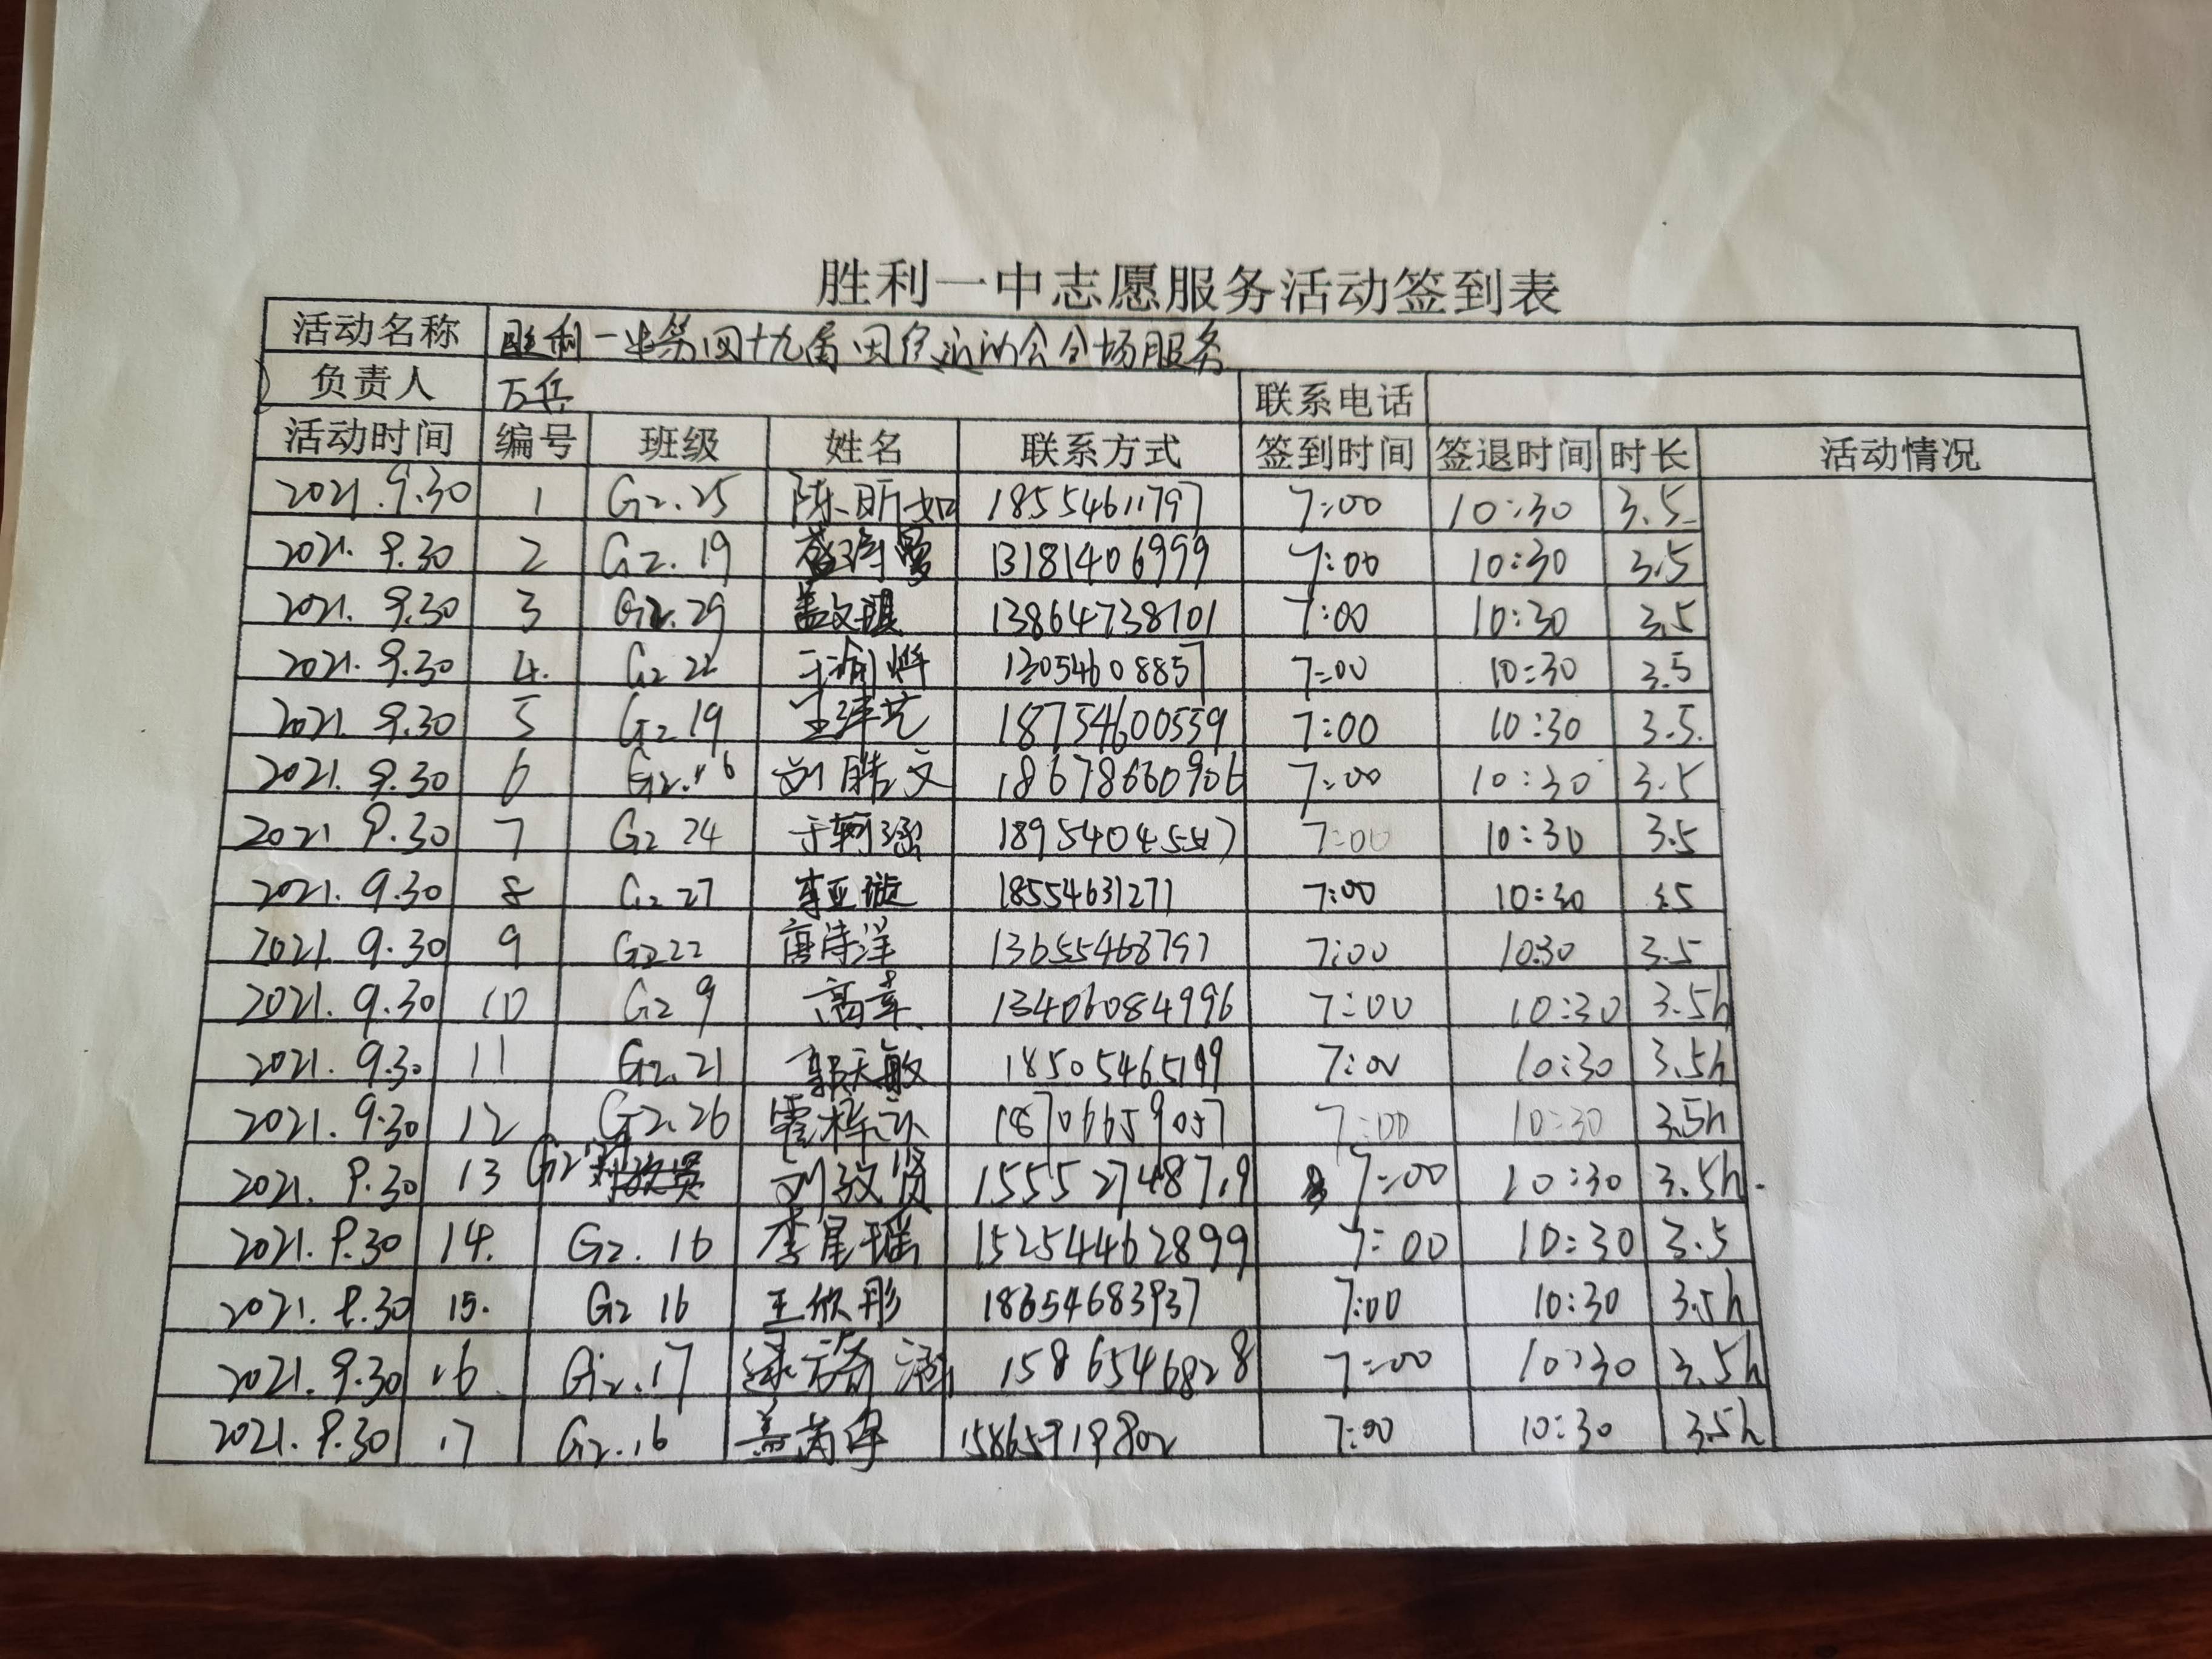 胜利一中志愿服务活动签到表
活动名称 胜利一中第四十九届田径运动会会场服务
负责人 万兵 联系电话
活动时间 编号 班级 姓名 联系方式 签到时间 签退时间 时长 活动情况
2021.9.30 1 G2.25 陈昕如 18554611797 7:00 10:30 3.5
2021.9.30 2 G2.19 13181406999 7:00 10:30 3.5
2021.9.30 3 G2.29 盖文琪 13864738101 7:00 10:30 3.5
2021.9.30 4. G2 22 13054608857 7:00 10:30 3.5
2021.9.30 5 G2 19 18754600559 7:00 10:30 3.5.
2021.9.30 6 G2.16 刘胜文 18678660906 7:00 10:30 3.5
2021 9.30 7 G2 24 7:00 10:30 3.5
2021.9.30 8 G2 27 李亚璇 18554631271 7:00 10:30 3.5
2021.9.30 9 G2 22 唐诗洋 13655468797 7:00 10:30 3.5
2021.9.30 10 G2 9 高幸 13406084996 7:00 10:30 3.5h
2021.9.30 11 G2.21 郭天敏 18505465199 7:00 10:30 3.5h
2021.9.30 12 G2.26 18706659057 7:00 10:30 3.5h
2021.9.30 13 G2 刘玟贤 15552748719 7:00 10:30 3.5h.
2021.9.30 14. G2.16 李星瑶 15254462899 7:00 10:30 3.5
2021.9.30 15. G2 16 王欣彤 18654683937 7:00 10:30 3.5h
2021.9.30 16 G2.17 15865546828 7:00 10:30 3.5h
2021.9.30 17 G2.16 15865919802 7:00 10:30 3.5h